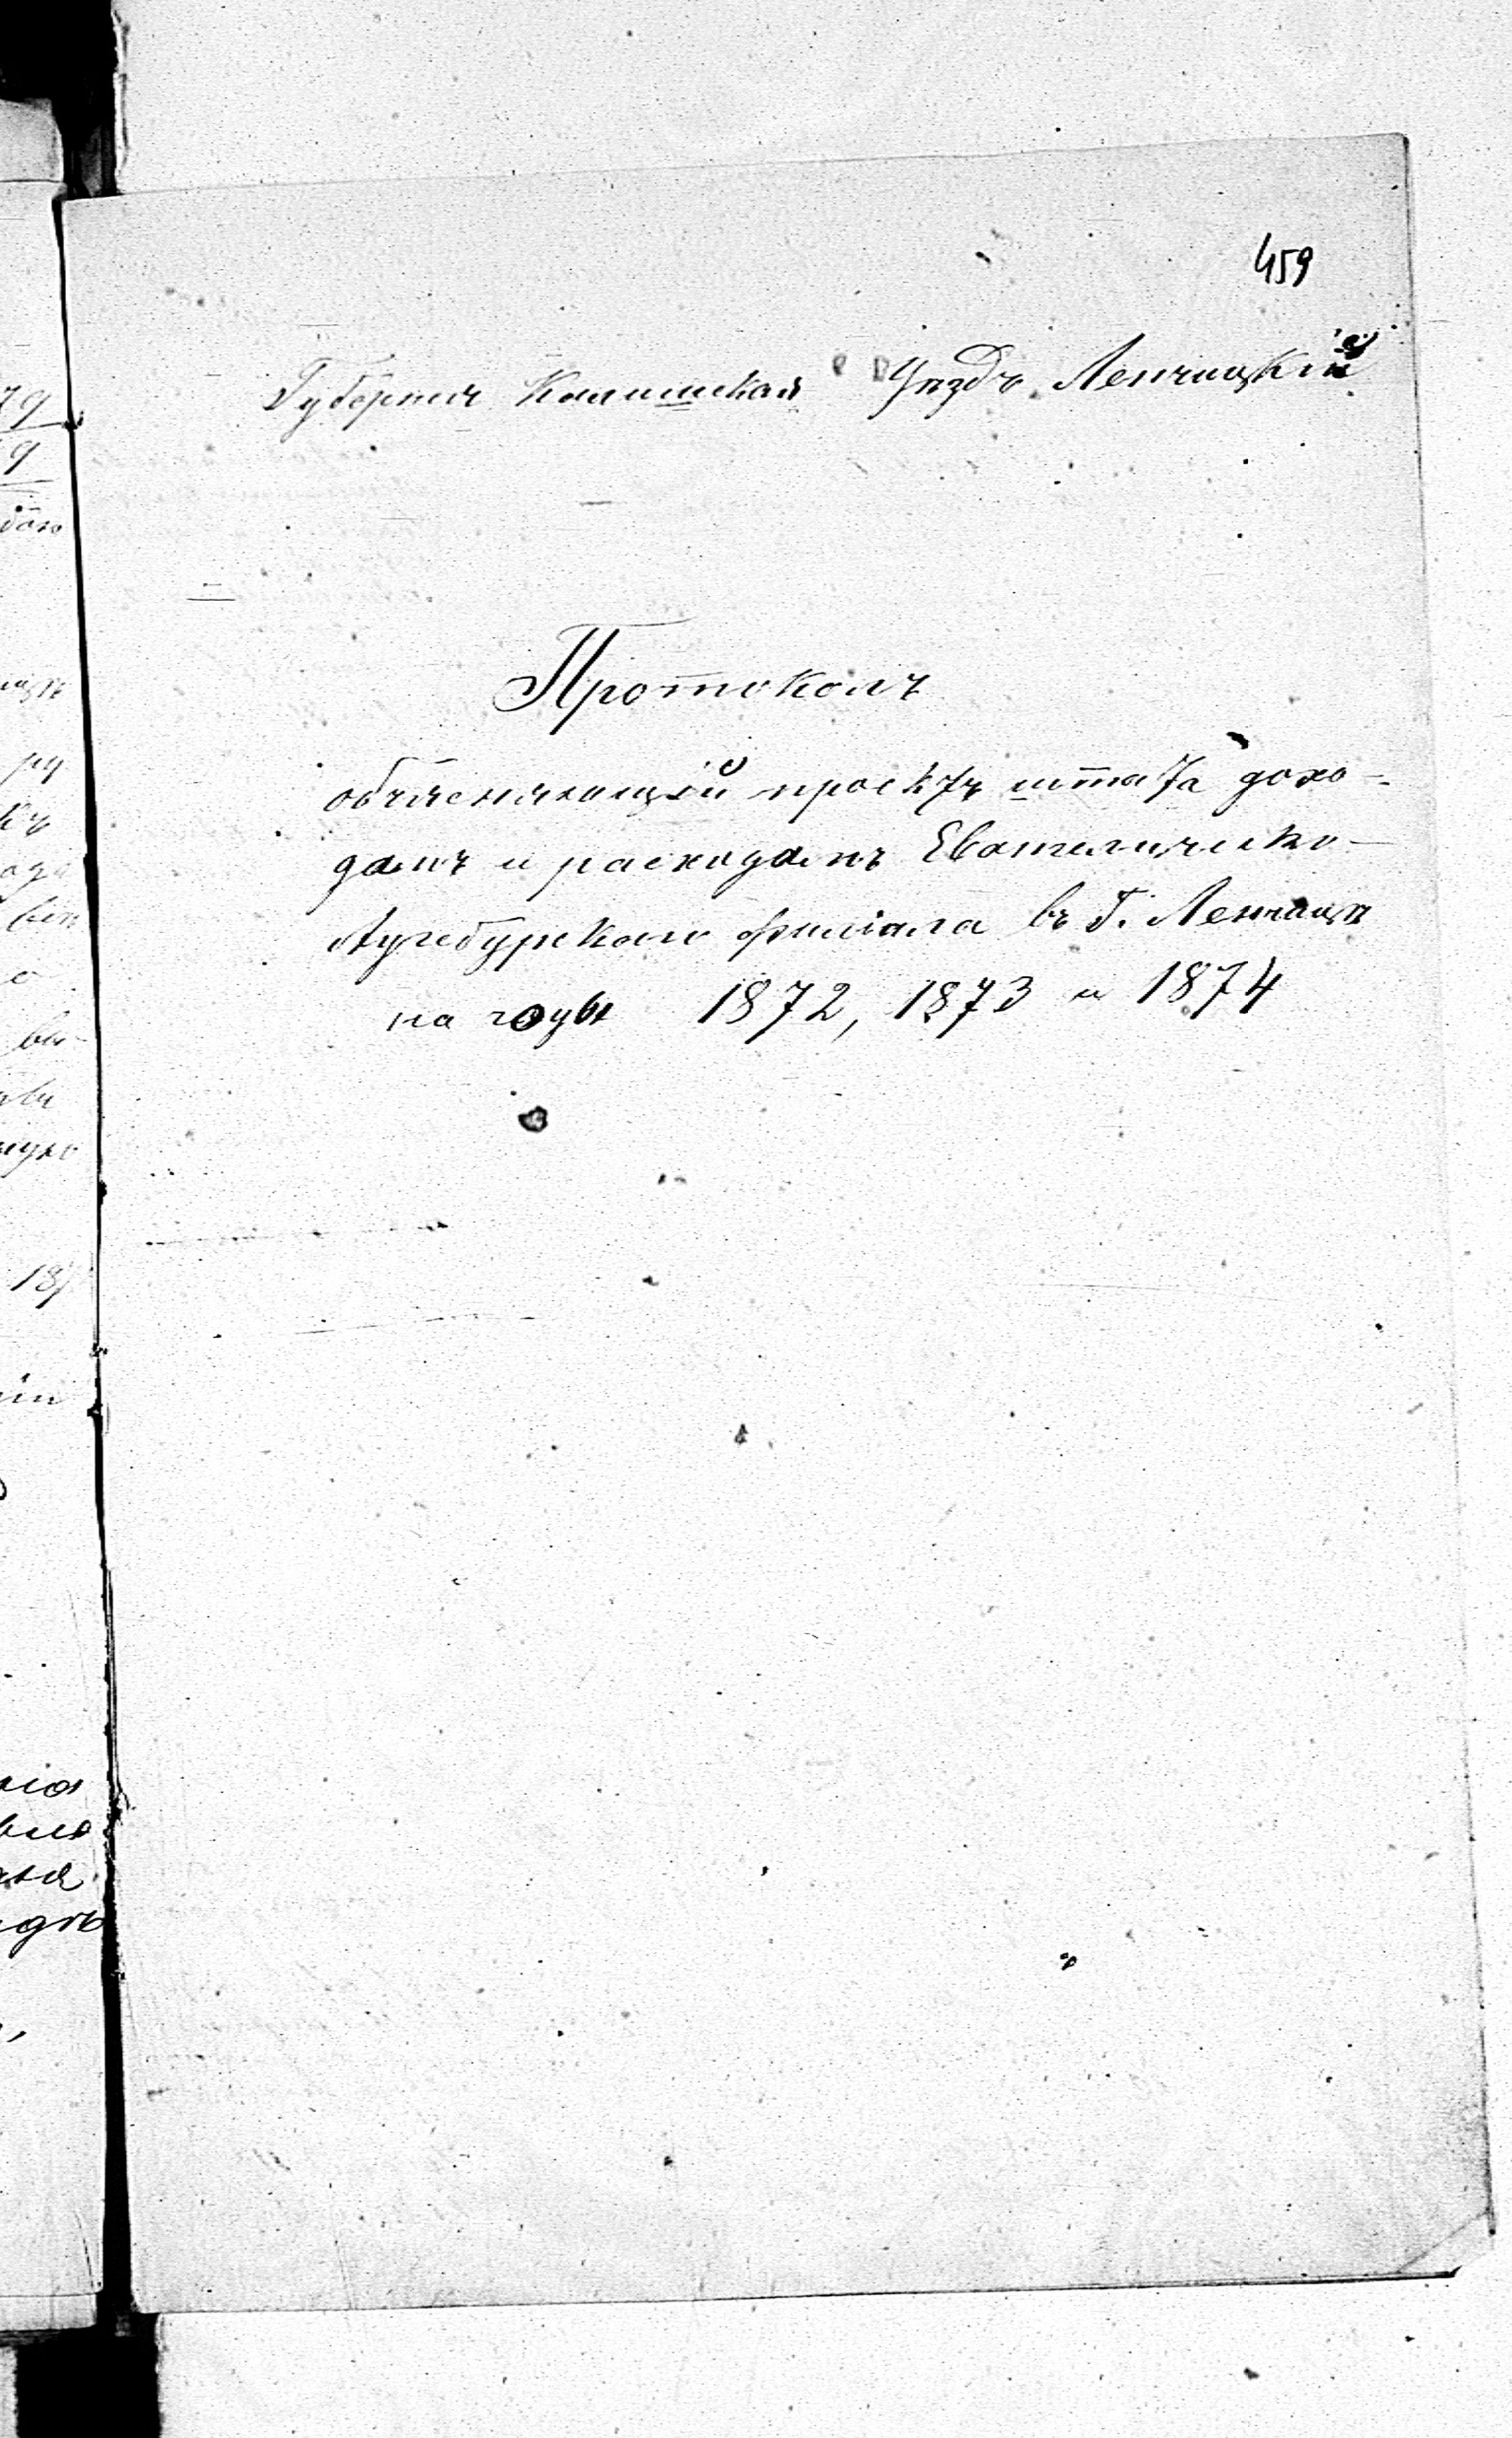 459
Губернія Калишская Уѣздъ Ленчицкій
Протоколъ
объясняющій проектъ штата дохо-
дамъ и расходамъ Евангелическо-
Аугсбурскаго филіала въ г. Ленчицѣ
на годы 1872, 1873 и 1874